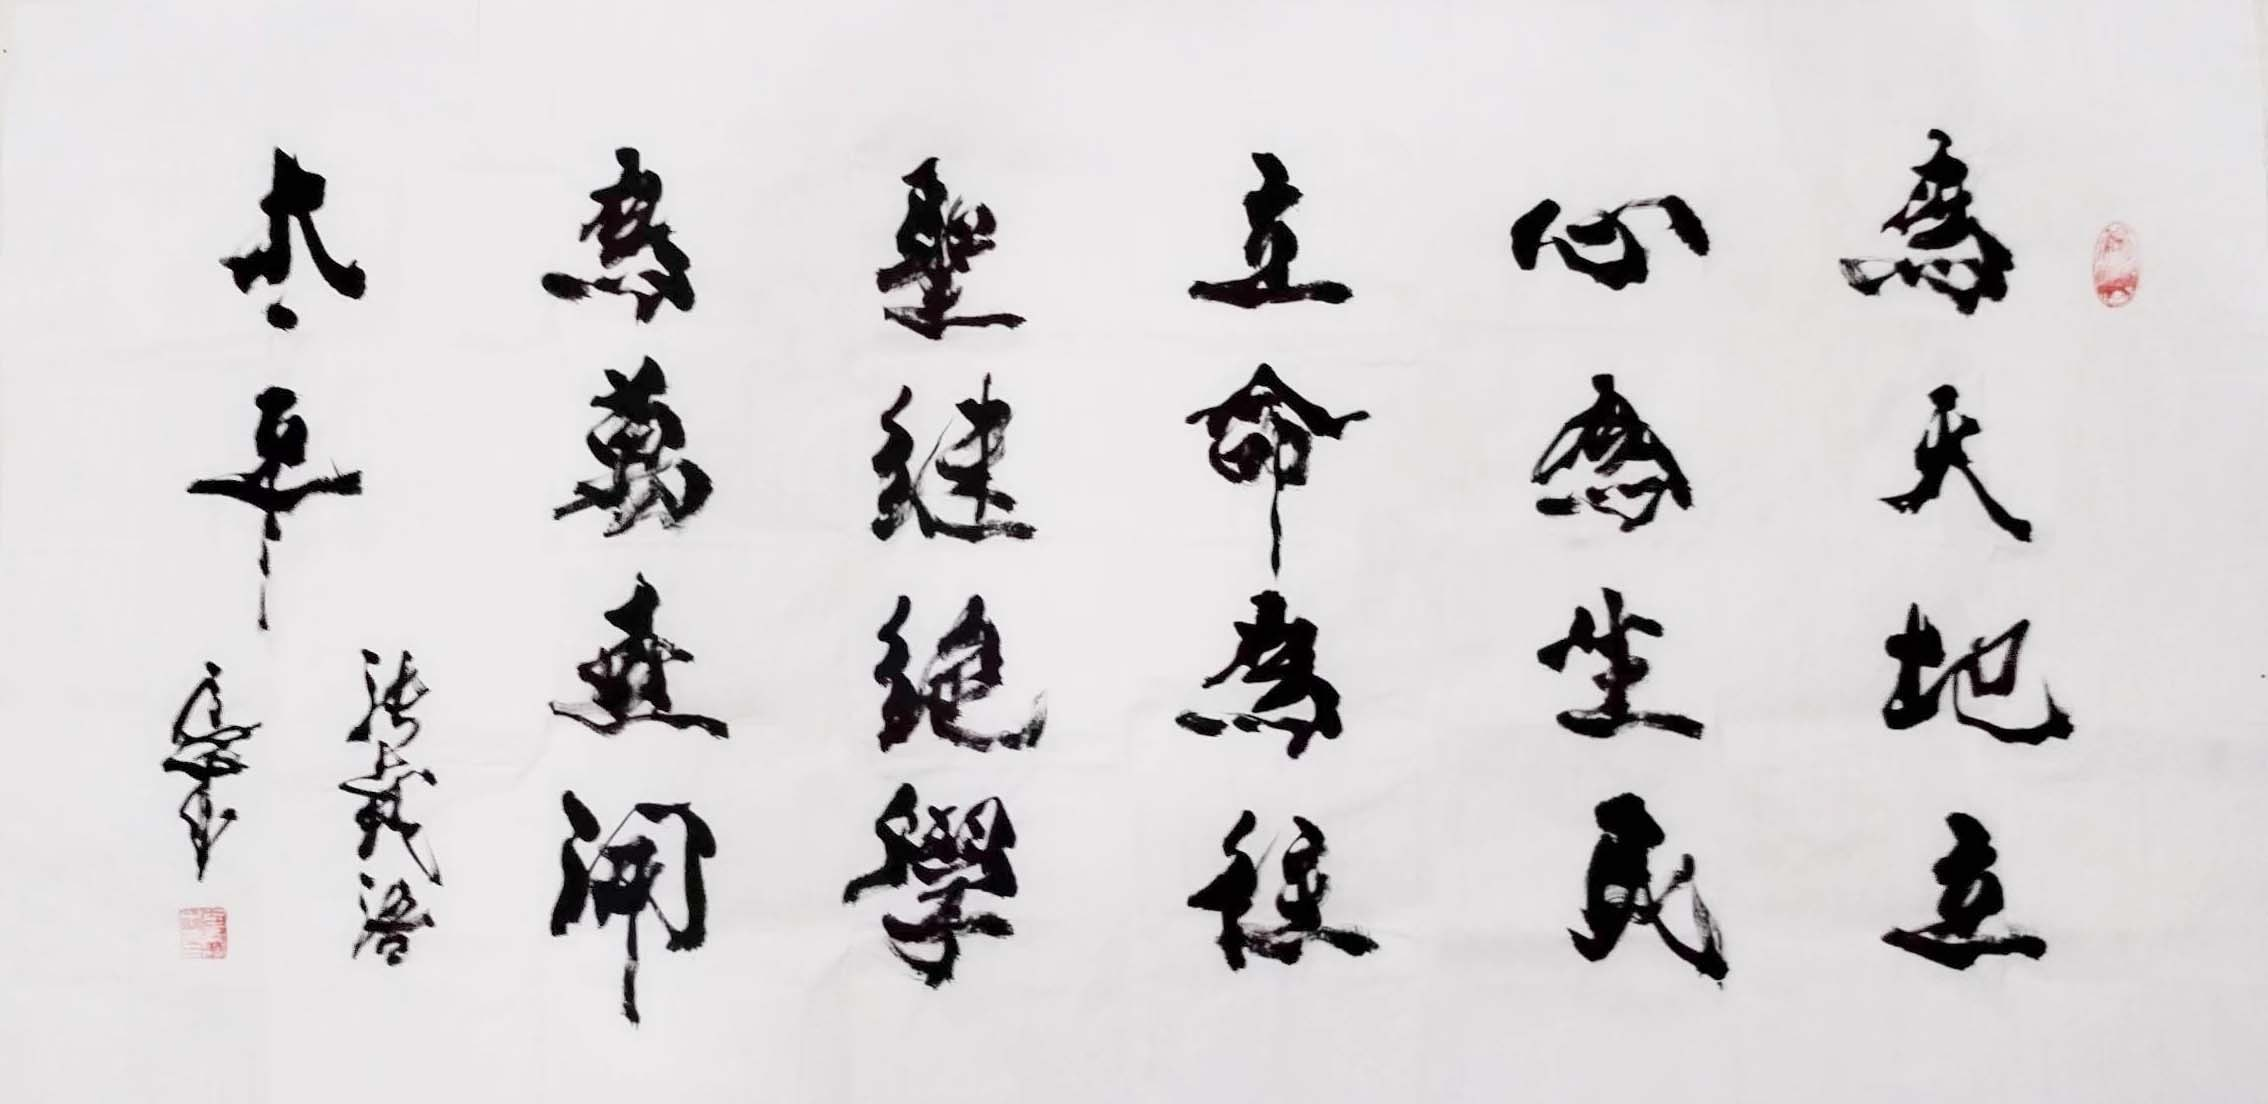 為天地立
心為生民
立命為往
聖継絶學
為萬世開
太平
張載語